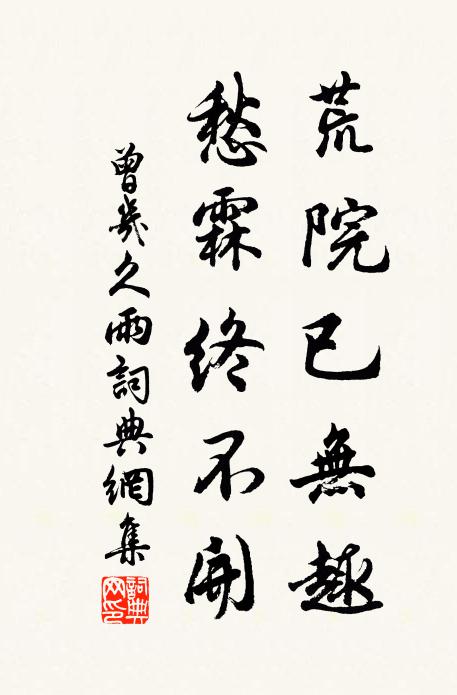 荒院已無趣
愁霖終不開
曾幾久雨詞典網集
詞典網印